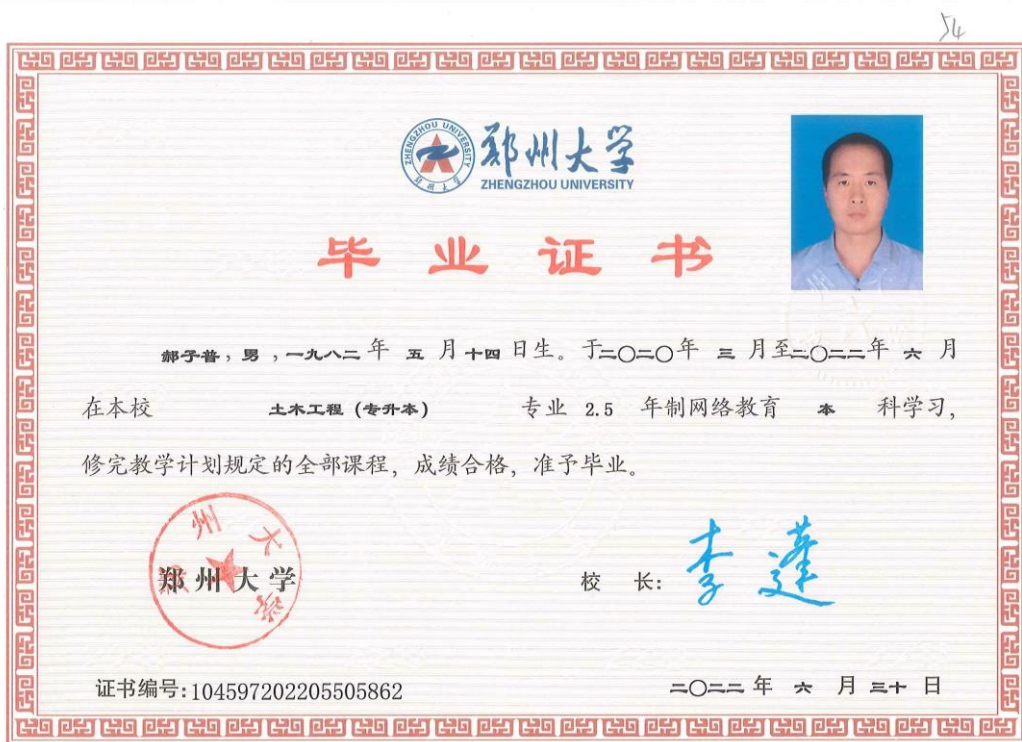 54
ZHENGZHOU UNIVERSITY
郑州大学
郑州大学
ZHENGZHOU UNIVERSITY
毕业证书
郝子普，男，一九八二年 五 月十四日生。于二〇二〇年 三 月至二〇二二年 六 月
在本校 土木工程（专升本） 专业 2.5 年制网络教育 本 科学习，
修完教学计划规定的全部课程，成绩合格，准予毕业。
郑州大学
郑州大学
校 长：李蓬
证书编号：104597202205505862
二〇二二年 六 月三十日